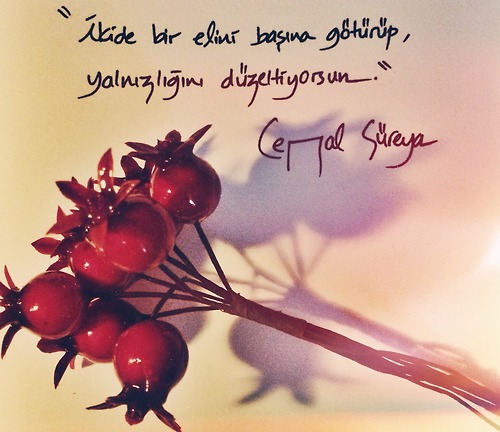 "İkide bir elini başına götürüp,
yalnızlığını düzeltiyorsun."
Cemal Süreya